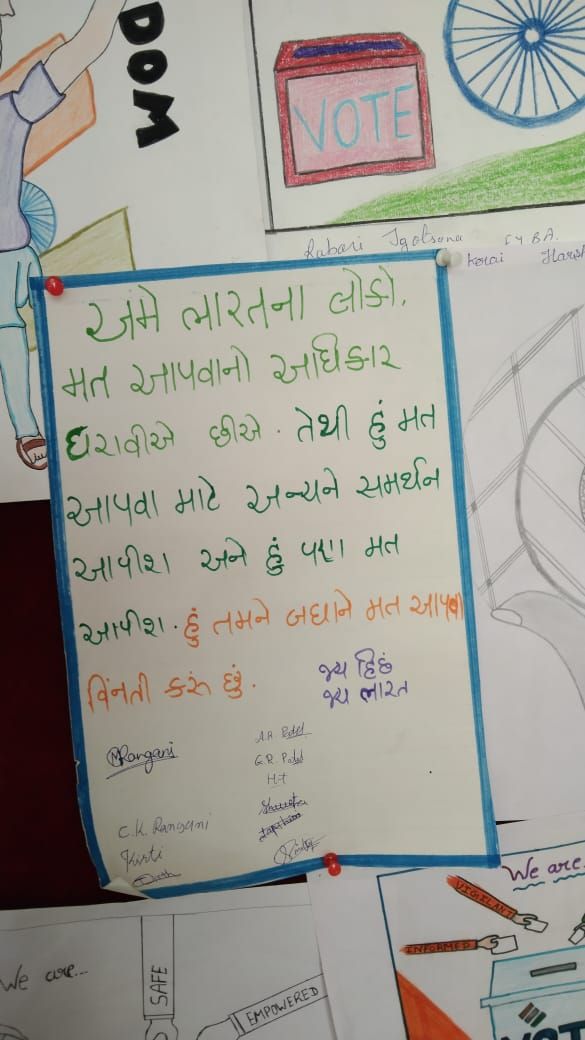 DOM
VOTE
Rabari Jyotsana SYBA.
અમે ભારતના લોકો,
મત આપવાનો અધિકાર
ધરાવીએ છીએ. તેથી હું મત
આપવા માટે અન્યને સમર્થન
આપીશ અને હું પણ મત
આપીશ. હું તમને બધાને મત આપવા
વિનતી કરું છું.
જય હિંદ
જય ભારત
Rangani
G.R. Patel
H.T
C.K. Rangani
Kirti
We are...
SAFE
EMPOWERED
We are
VIGILANT
INFORMED
VOT